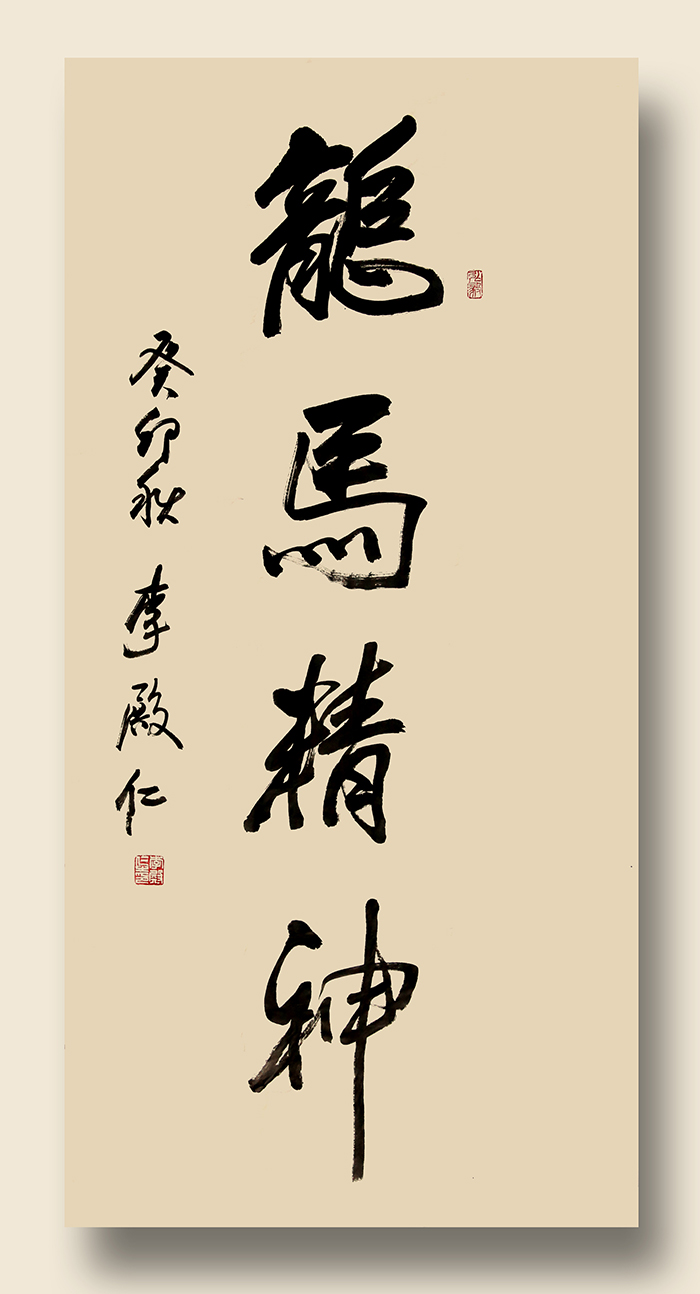 龍馬精神
癸卯秋 李殿仁